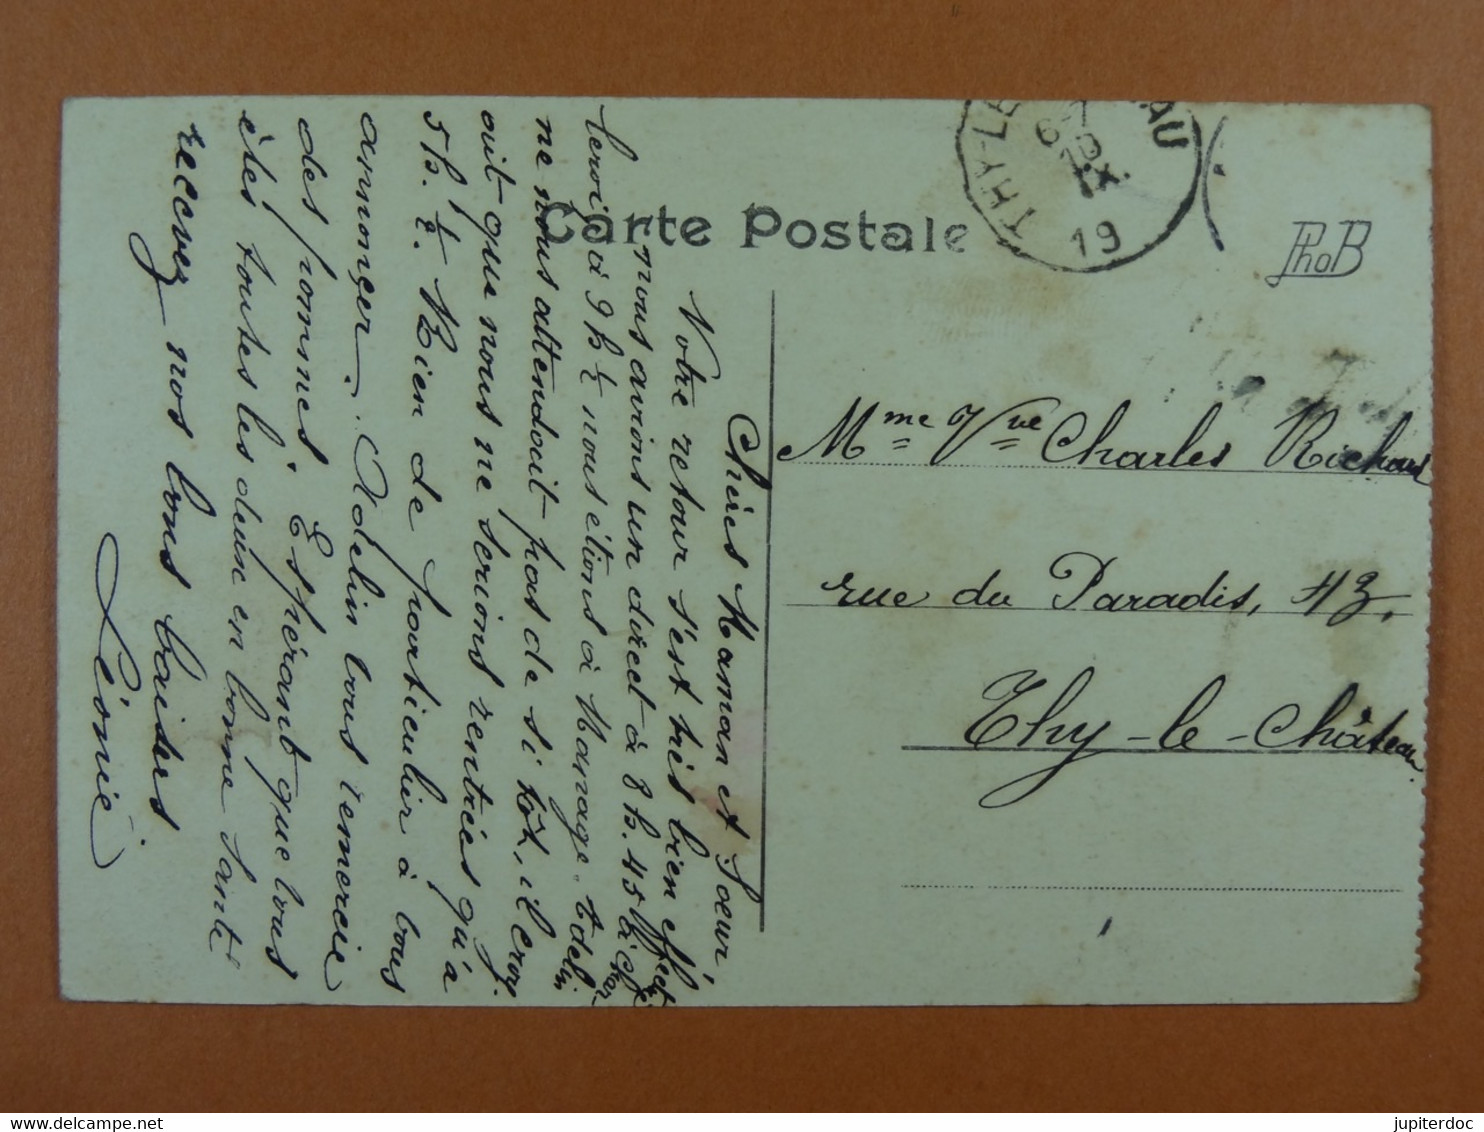 Carte Postale
THY-LE AU
6-7
IX.
19
PhoB
Mme Vve Charles Richard
rue du Paradis, 43,
Thy-le-Château.
Chères Maman et Soeur,
Votre retour s'est très bien effect
nous avions un direct à 8 h. 45 à Char
leroi, à 9 h ½ nous étions à Manage. Adelin
ne nous attendait pas de si tôt, il croy
ait que nous ne serions rentrées qu'à
5 h. ½. Rien de particulier à vous
annoncer. Adelin vous remercie
des pommes. Espérant que vous
êtes toutes les deux en bonne santé
recevez nos bons baisers
Léonie
jupiterdoc
delcampe.net